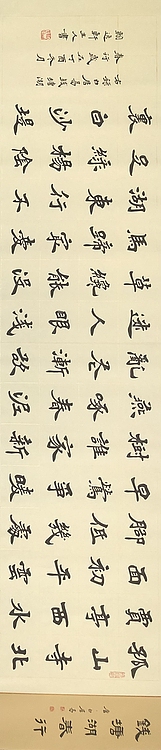 錢塘湖春行
唐 白居易
孤山寺北
賈亭西水
面初平雲
腳低幾處
早鶯爭暖
樹誰家新
燕啄春泥
亂花漸欲
迷人眼淺
草纔能沒
馬蹄最愛
湖東行不
足綠楊陰
裏白沙堤
右錄白居易錢塘湖
春行歲在丁酉冬月
軒主人書